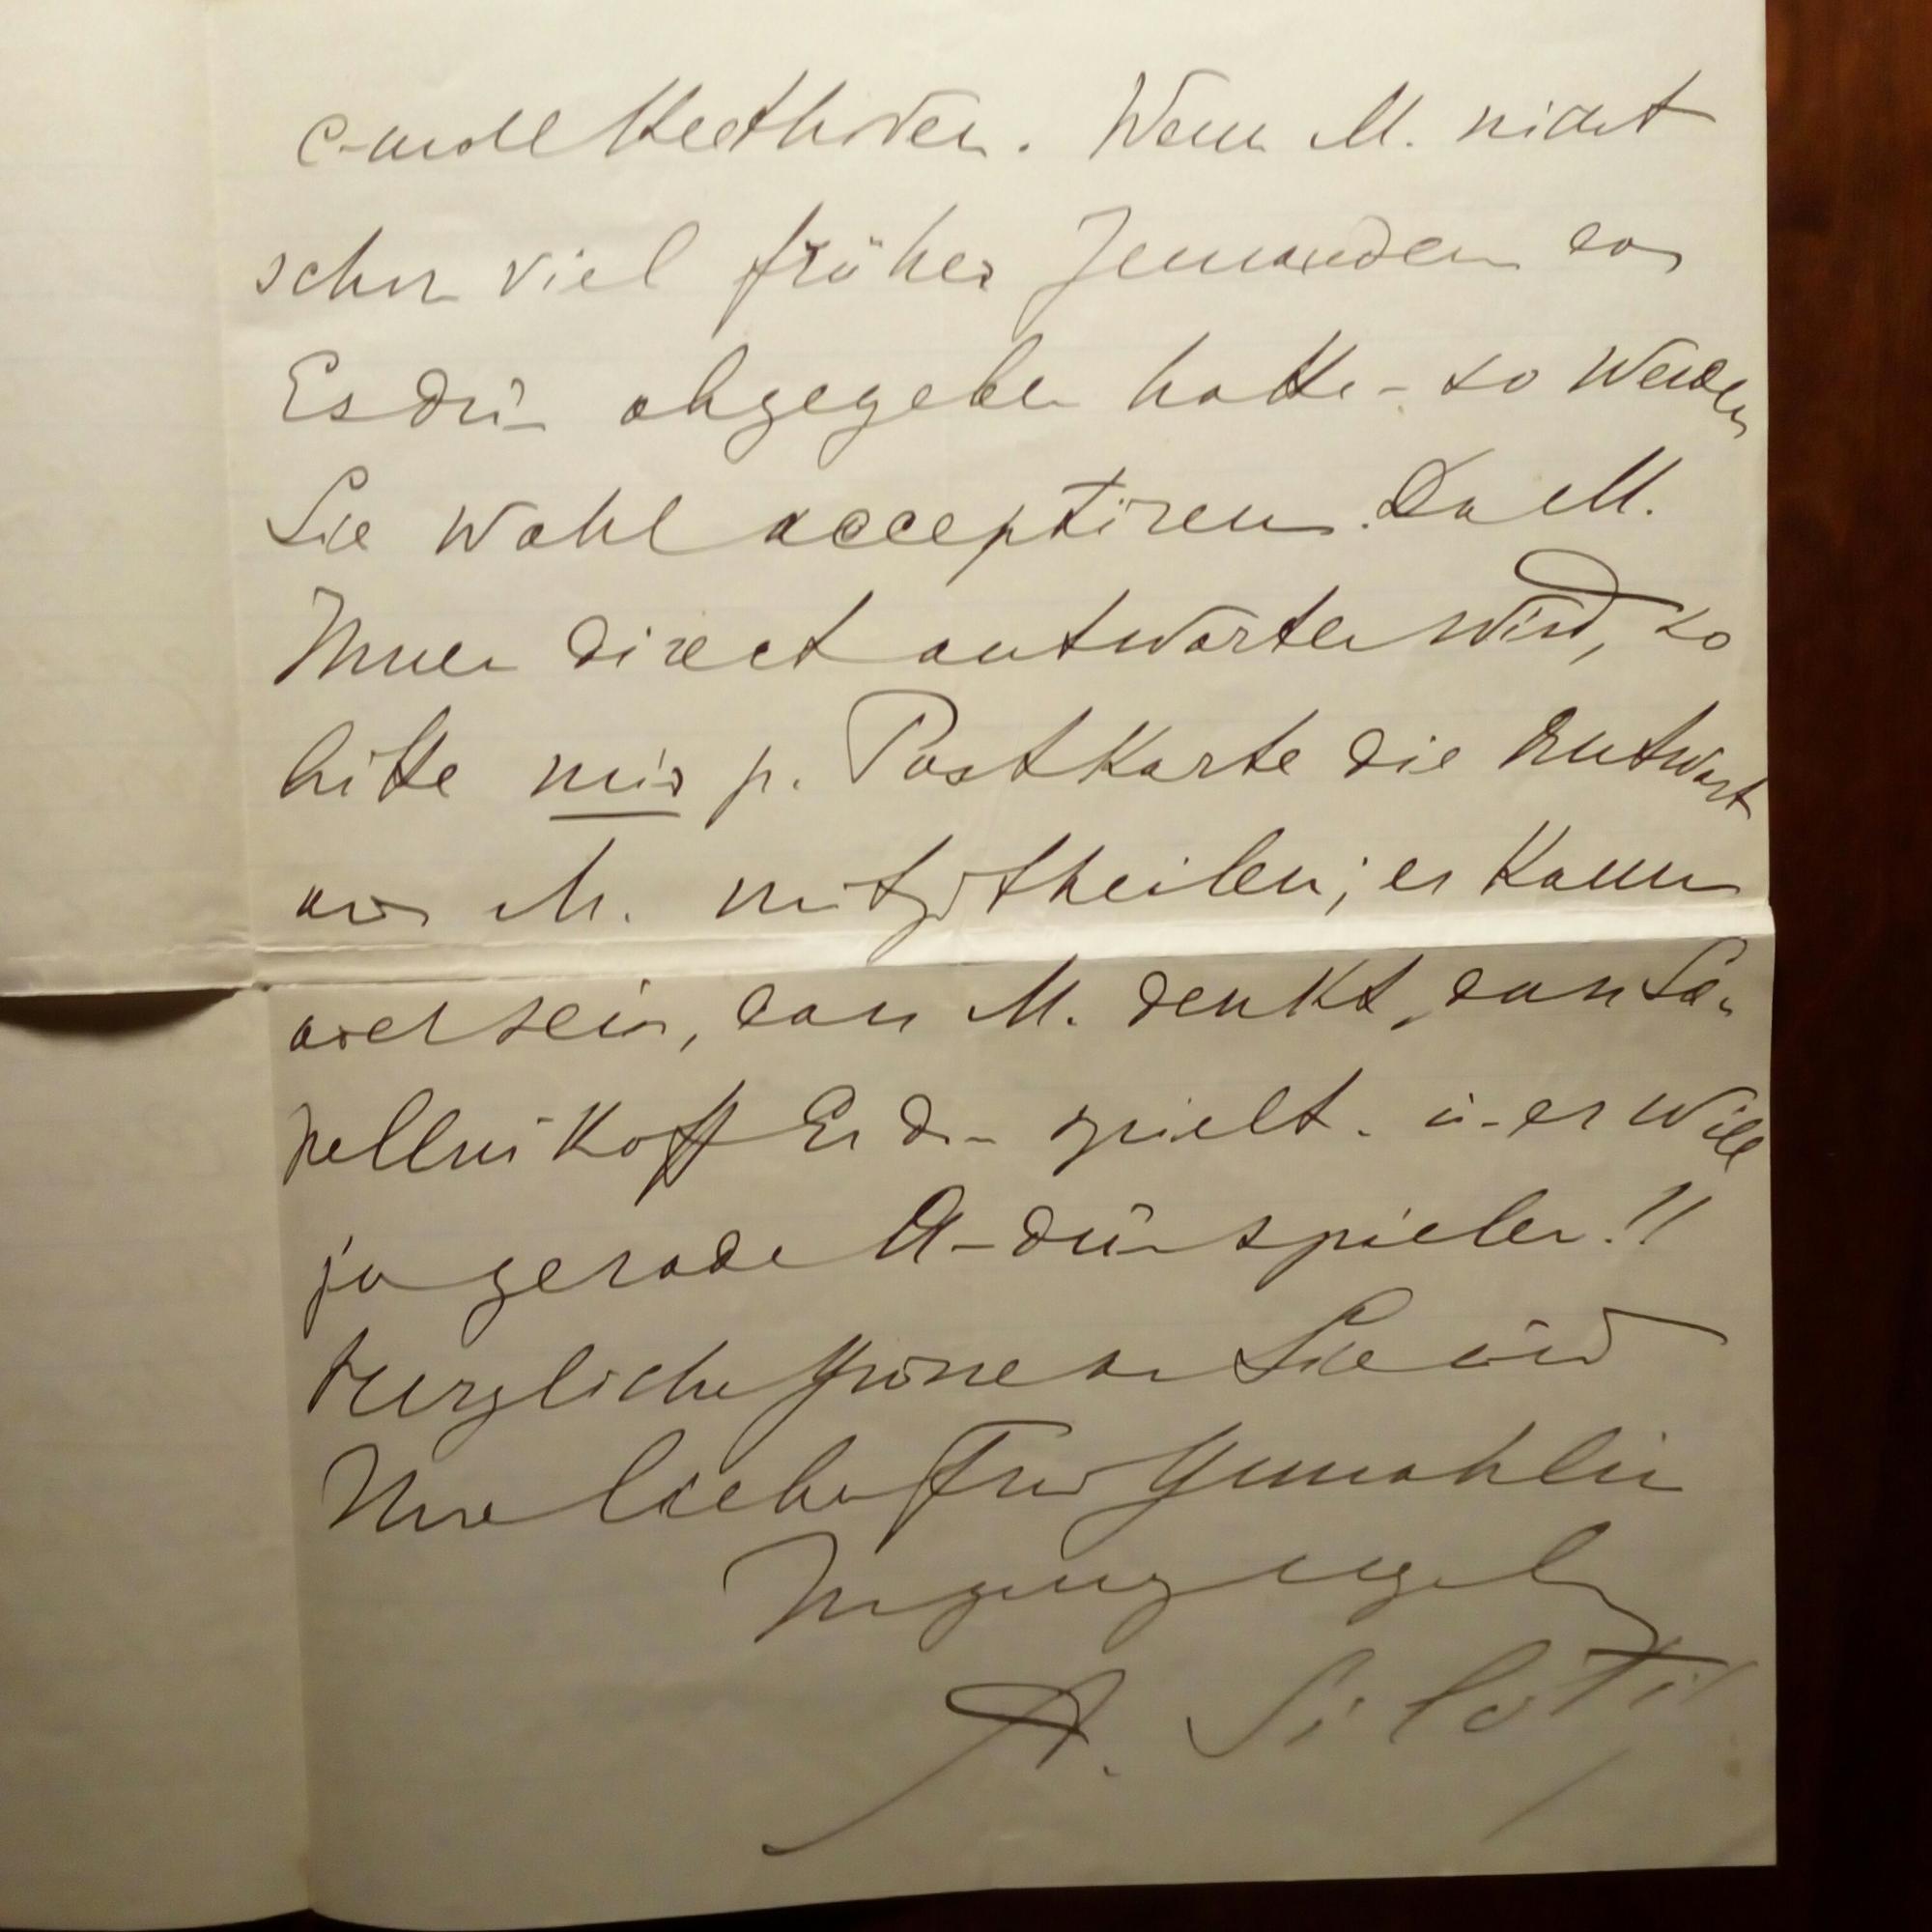 c-moll Beethoven. Wenn M. nicht
schon viel früher Jemanden das
Esdur abgegeben hatte - so werden
Sie wohl acceptiren. Da M.
Ihnen direct antworten wird, so
bitte mir p. Postkarte die Antwort
von M. mitzutheilen; es kann
wohl sein, dass M. denkt, dass Sa-
pellnikoff Es d- spielt. u. er will
ja gerade A-dur spielen!!
Herzliche Grüsse an Sie und
Ihre liebe Frau Gemahlin
Ihr ganz ergeb
A. Siloti